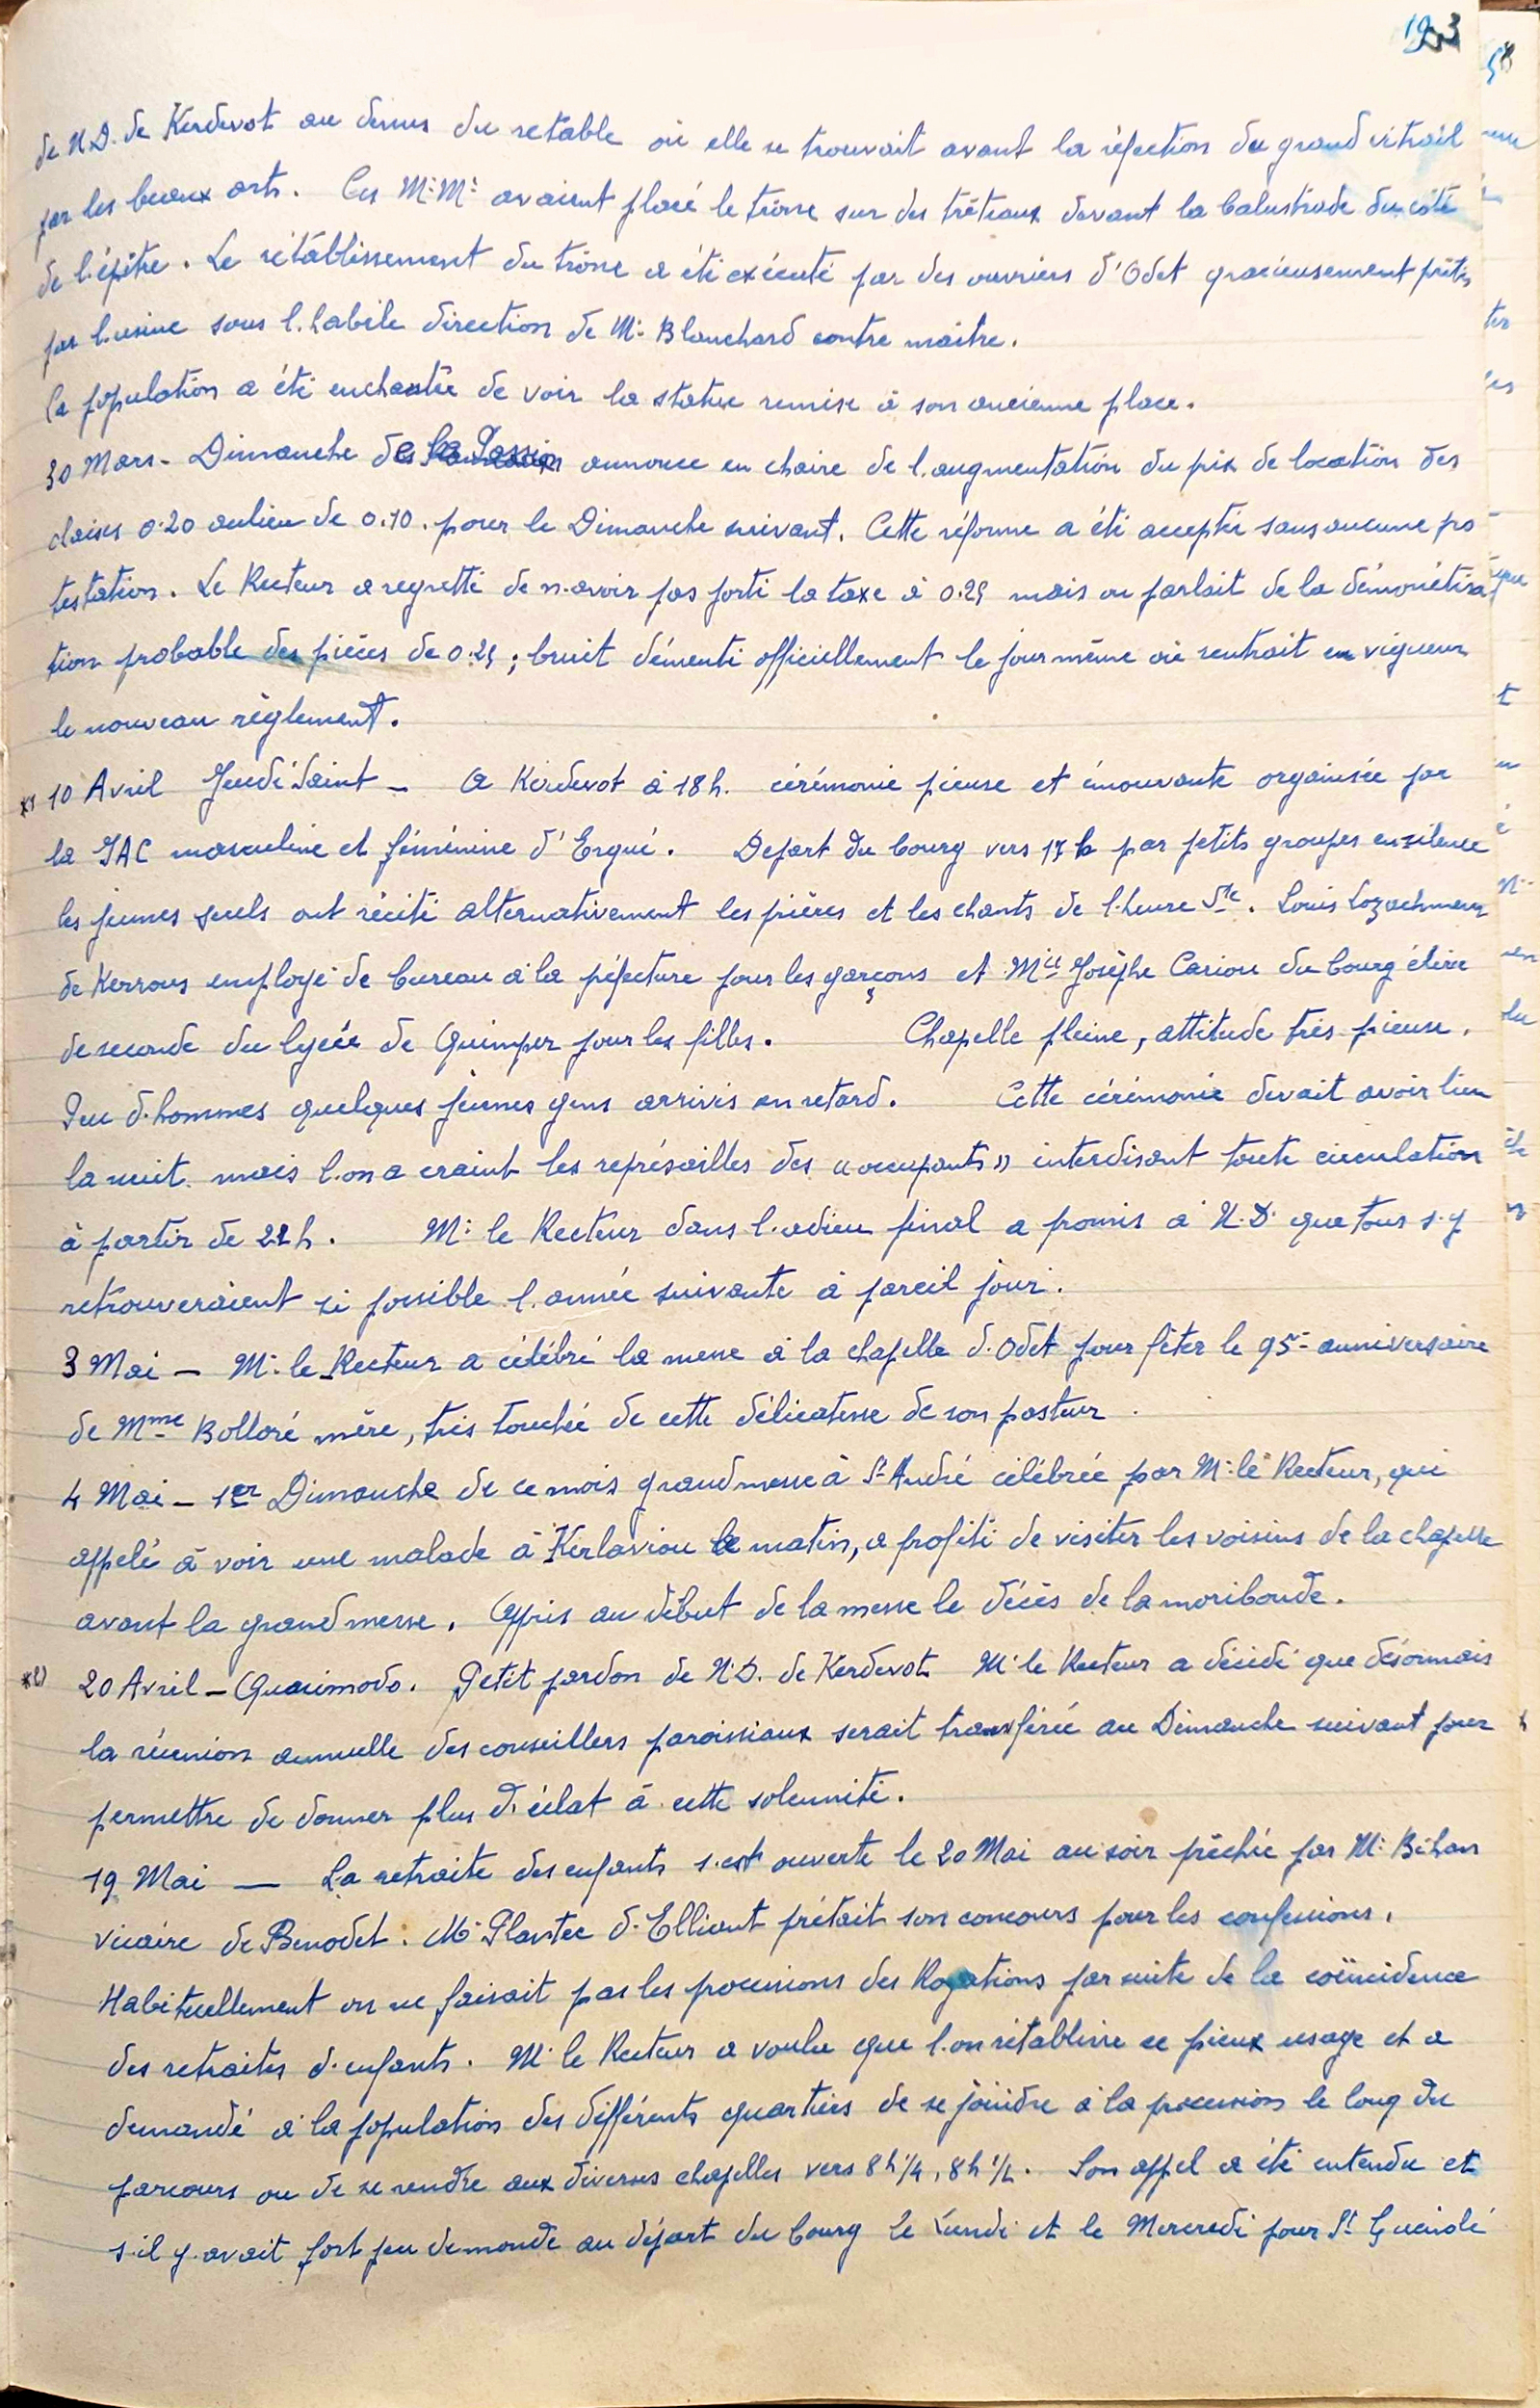 193
de N.D. de Kerdevot au dessus du retable où elle se trouvait avant la réfection du grand vitrail
par les beaux arts. Ces M:M: avaient placé le trône sur des tréteaux devant la balustrade du côté
de l'épître. Le rétablissement du trône a été exécuté par des ouvriers d'Odet gracieusement prêtés
par l'usine sous l'habile direction de M: Blanchard contre maître.
la population a été enchantée de voir la statue remise à son ancienne place.
30 Mars - Dimanche de la Passion annonce en chaire de l'augmentation du prix de location des
chaises 0.20 aulieu de 0.10. pour le Dimanche suivant. Cette réforme a été acceptée sans aucune pro
testation. Le Recteur a regretté de n'avoir pas porté la taxe à 0.25 mais on parlait de la démonétisa
tion probable des pièces de 0.25; bruit démenti officiellement le jour même où rentrait en vigueur
le nouveau règlement.
10 Avril Jeudi Saint - A Kerdevot à 18 h. cérémonie pieuse et émouvante organisée par
la JAC masculine et féminine d'Ergué. Depart du bourg vers 17 h par petits groupes en silence
les jeunes seuls ont récité alternativement les prières et les chants de l'heure Ste. Louis Lozachmeur
de Kerrous employé de bureau à la préfecture pour les garçons et Mlle Josèphe Cariou du bourg élève
de seconde du lycée de Quimper pour les filles. Chapelle pleine, attitude très pieuse.
Peu d'hommes quelques jeunes gens arrivés en retard. Cette cérémonie devait avoir lieu
la nuit. mais l'on a craint les représailles des "occupants" interdisant toute circulation
à partir de 22 h. M: le Recteur dans l'adieu final a promis à N.D. que tous s'y
retrouveraient si possible l'année suivante à pareil jour.
3 Mai - M: le Recteur a célébré la messe à la chapelle d'Odet pour fêter le 95e anniversaire
de Mme Bolloré mère, très touchée de cette délicatesse de son pasteur.
4 Mai - 1er Dimanche de ce mois grand messe à St André célébrée par M: le Recteur, qui
appelé à voir une malade à Kerlaviou le matin, a profité de visiter les voisins de la chapelle
avant la grand messe. Appris au début de la messe le décès de la moribonde.
20 Avril - Quasimodo. Petit pardon de N.D. de Kerdevot. M: le Recteur a décidé que désormais
la réunion annuelle des conseillers paroissiaux serait transférée au Dimanche suivant pour
permettre de donner plus d'éclat à cette solennité.
19 Mai - La retraite des enfants s'est ouverte le 20 Mai au soir prêchée par M: Bihan
vicaire de Benodet. M: Plantec d'Elliant prêtait son concours pour les confessions.
Habituellement on ne faisait pas les processions des Rogations par suite de la coïncidence
des retraites d'enfants. M: le Recteur a voulu que l'on rétablisse ce pieux usage et a
demandé à la population des différents quartiers de se joindre à la procession le long du
parcours ou de se rendre aux diverses chapelles vers 8 h 1/4, 8 h 1/2. Son appel a été entendu et
s'il y avait fort peu de monde au départ du bourg le Lundi et le Mercredi pour St Guénolé